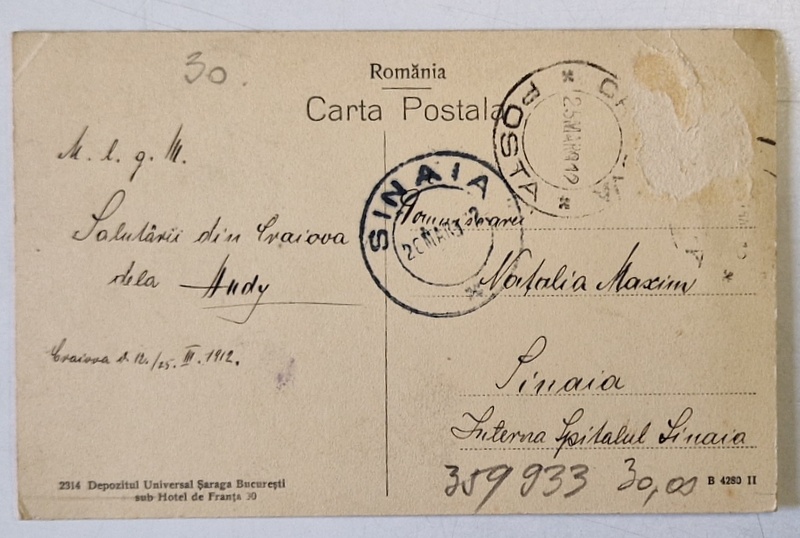 30.
România
Carta Postala
POSTA
25 MAR 912
SINAIA
M. l. g. M.
Salutări din Craiova
dela Andy
Craiova d. 12./25. III. 1912.
Natalia Maxim
Sinaia
Interna Spitalul Sinaia
359933 30,00
2314 Depozitul Universal Șaraga București
sub Hotel de Franța 30
B 4280 II